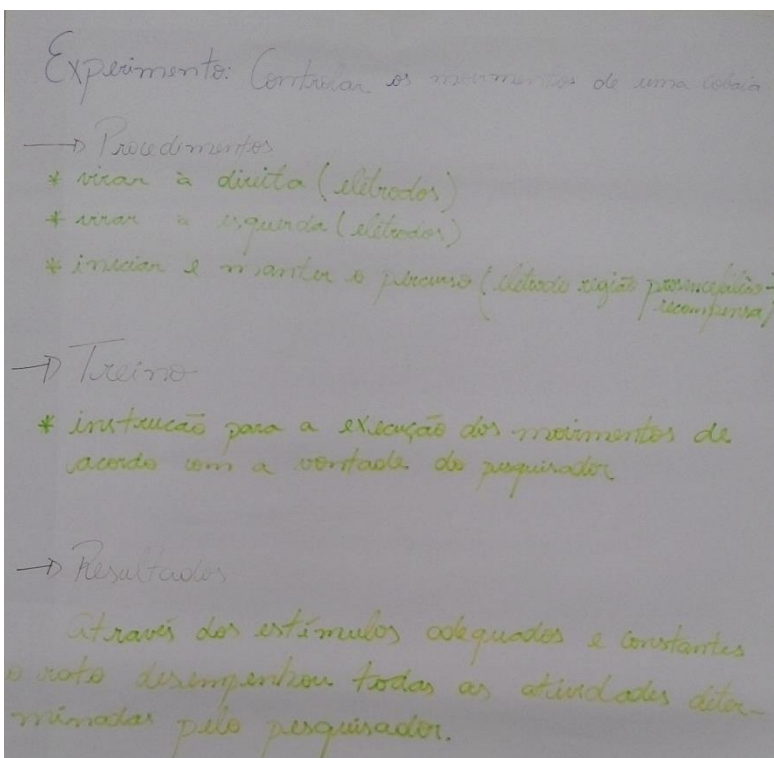 Experimento: Controlar os movimentos de uma cobaia
→ Procedimentos
* virar à direita (elétrodos)
* virar a esquerda (elétrodos)
* iniciar e manter o percurso (elétrodo região prosencefálio-
recompensa)
→ Treino
* instrucão para a execução dos movimentos de
acordo com a vontade do pesquisador
→ Resultados
Através dos estímulos adequados e constantes
o rato desempenhou todas as atividades deter-
minadas pelo pesquisador.